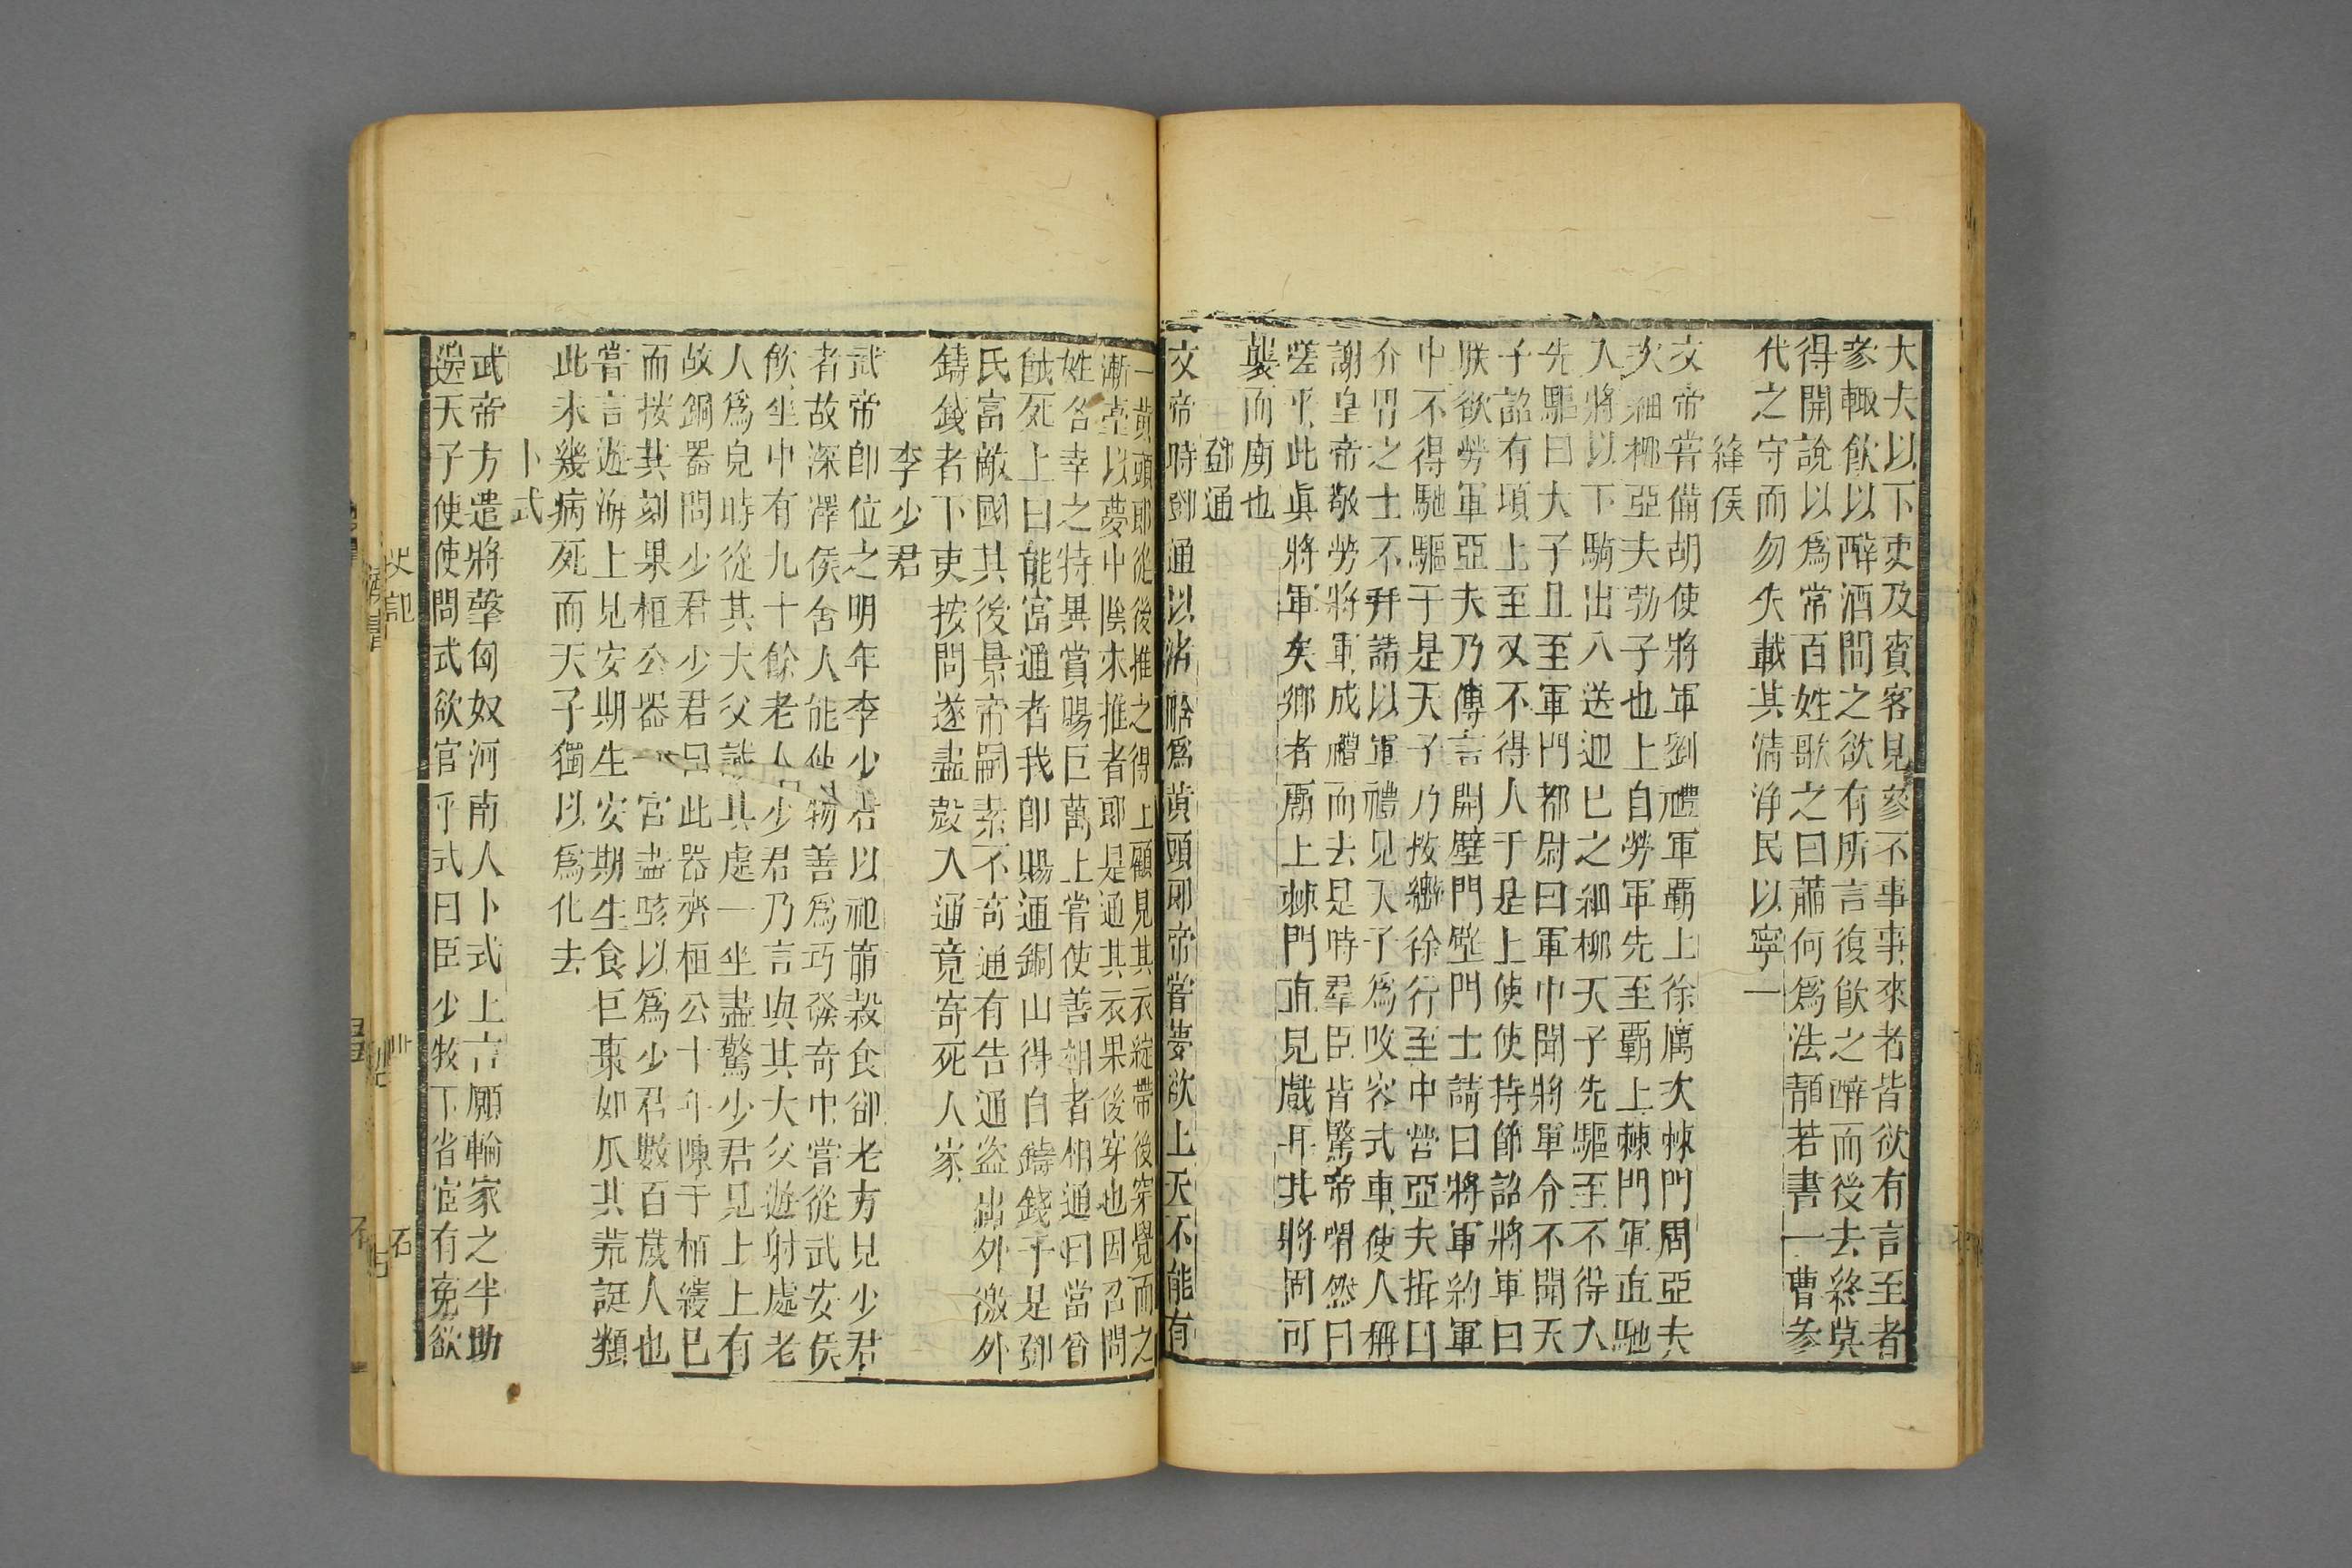 大夫以下吏及賓客見參不事事來者皆欲有言至者
參輙飲以醉酒間之欲有所言復飲之醉而後去終莫
得開說以爲常百姓歌之曰蕭何爲法顜若畫一曹參
代之守而勿失載其清净民以寧一
絳侯
文帝嘗備胡使將軍劉禮軍覇上徐厲次棘門周亞夫
次細柳亞夫勃子也上自勞軍先至覇上棘門軍直馳
入將以下騎出入送迎已之細柳天子先驅至不得入
先驅曰天子且至軍門都尉曰軍中聞將軍令不聞天
子詔有頃上至又不得入于是上使使持節詔將軍曰
朕欲勞軍亞夫乃傳言開壁門壁門士請曰將軍約軍
中不得馳驅于是天子乃按轡徐行至中營亞夫揖曰
介胄之士不拜請以軍禮見天子爲改容式車使人稱
謝皇帝敬勞將軍成禮而去是時羣臣皆驚帝喟然曰
嗟乎此真將軍矣鄉者覇上棘門直見戲耳其將固可
襲而虜也
鄧通
文帝時鄧通以濯船爲黄頭郎帝嘗夢欲上天不能有
一黄頭郎從後推之得上顧見其衣䘺帶後穿覺而之
漸臺以夢中陰求推者郎是通其衣果後穿也因召問
姓名幸之特異賞賜巨萬上嘗使善相者相通曰當貧
餓死上曰能富通者我卽賜通銅山得自鑄錢于是鄧
氏富敵國其後景帝嗣素不奇通有告通盜出外徼外
鑄錢者下吏按問遂盡殁入通竟寄死人家
李少君
武帝卽位之明年李少君以祀竈穀食卻老方見少君
者故深澤侯舍人能使物善爲巧發奇中嘗從武安侯
飲坐中有九十餘老人少君乃言與其大父遊射處老
人爲兒時從其大父識其處一坐盡驚少君見上上有
故銅器問少君少君曰此器齊桓公十年陳于栢寢已
而按其刻果桓公器一宮盡駭以爲少君數百歲人也
嘗言遊海上見安期生安期生食巨棗如瓜其荒誕類
此未幾病死而天子獨以爲化去
卜式
武帝方遣將擊匈奴河南人卜式上言願輸家之半助
邊天子使使問式欲官乎式曰臣少牧不省宦有寃欲
史記